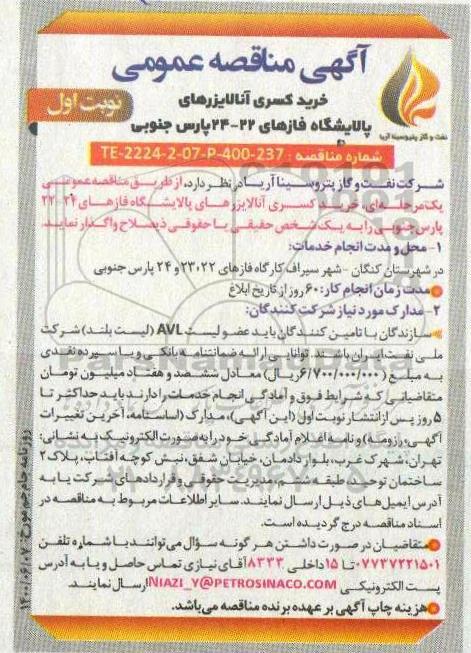 آگهی مناقصه عمومی
نوبت اول
خرید کسری آنالایزرهای
پالایشگاه فازهای ۲۲-۲۴ پارس جنوبی
نفت و گاز پتروسینا آریا
شماره مناقصه : TE-2224-2-07-P-400-237
شرکت نفت و گاز پتروسینا آریا در نظر دارد، از طریق مناقصه عمومی
یک مرحله‌ای، خرید کسری آنالایزرهای پالایشگاه فازهای ۲۴-۲۲
پارس جنوبی را به یک شخص حقیقی یا حقوقی ذیصلاح واگذار نماید.
۱- محل و مدت انجام خدمات:
در شهرستان کنگان - شهر سیراف کارگاه فازهای ۲۳،۲۲ و ۲۴ پارس جنوبی
مدت زمان انجام کار: ۶۰ روز از تاریخ ابلاغ
۲- مدارک مورد نیاز شرکت کنندگان:
سازندگان یا تامین کنندگان باید عضو لیست AVL (لیست بلند) شرکت
ملی نفت ایران باشند. توانایی ارائه ضمانتنامه بانکی و یا سپرده نقدی
به مبلغ (۶/۷۰۰/۰۰۰/۰۰۰ ریال) معادل ششصد و هفتاد میلیون تومان
متقاضیانی که شرایط فوق و آمادگی انجام خدمات را دارند باید حداکثر تا
۵ روز پس از انتشار نوبت اول (این آگهی)، مدارک (اساسنامه، آخرین تغییرات
آگهی، رزومه) و نامه اعلام آمادگی خود را به صورت الکترونیک به نشانی:
تهران، شهرک غرب، بلوار دادمان، خیابان شفق، نبش کوچه آفتاب، پلاک ۲
ساختمان توحید، طبقه ششم، مدیریت حقوقی و قراردادهای شرکت یا به
آدرس ایمیل‌های ذیل ارسال نمایند. سایر اطلاعات مربوط به مناقصه در
اسناد مناقصه درج گردیده است.
متقاضیان در صورت داشتن هر گونه سؤال می‌توانند با شماره تلفن
۰۷۷۳۷۲۲۱۵۰۱ تا ۱۵ داخلی ۸۳۳۳ آقای نیازی تماس حاصل و یا به آدرس
پست الکترونیکی NIAZI_Y@PETROSINACO.COM ارسال نمایند.
هزینه چاپ آگهی بر عهده برنده مناقصه می‌باشد.
روزنامه جام جم مورخ ۱۴۰۰/۰۶/۰۷